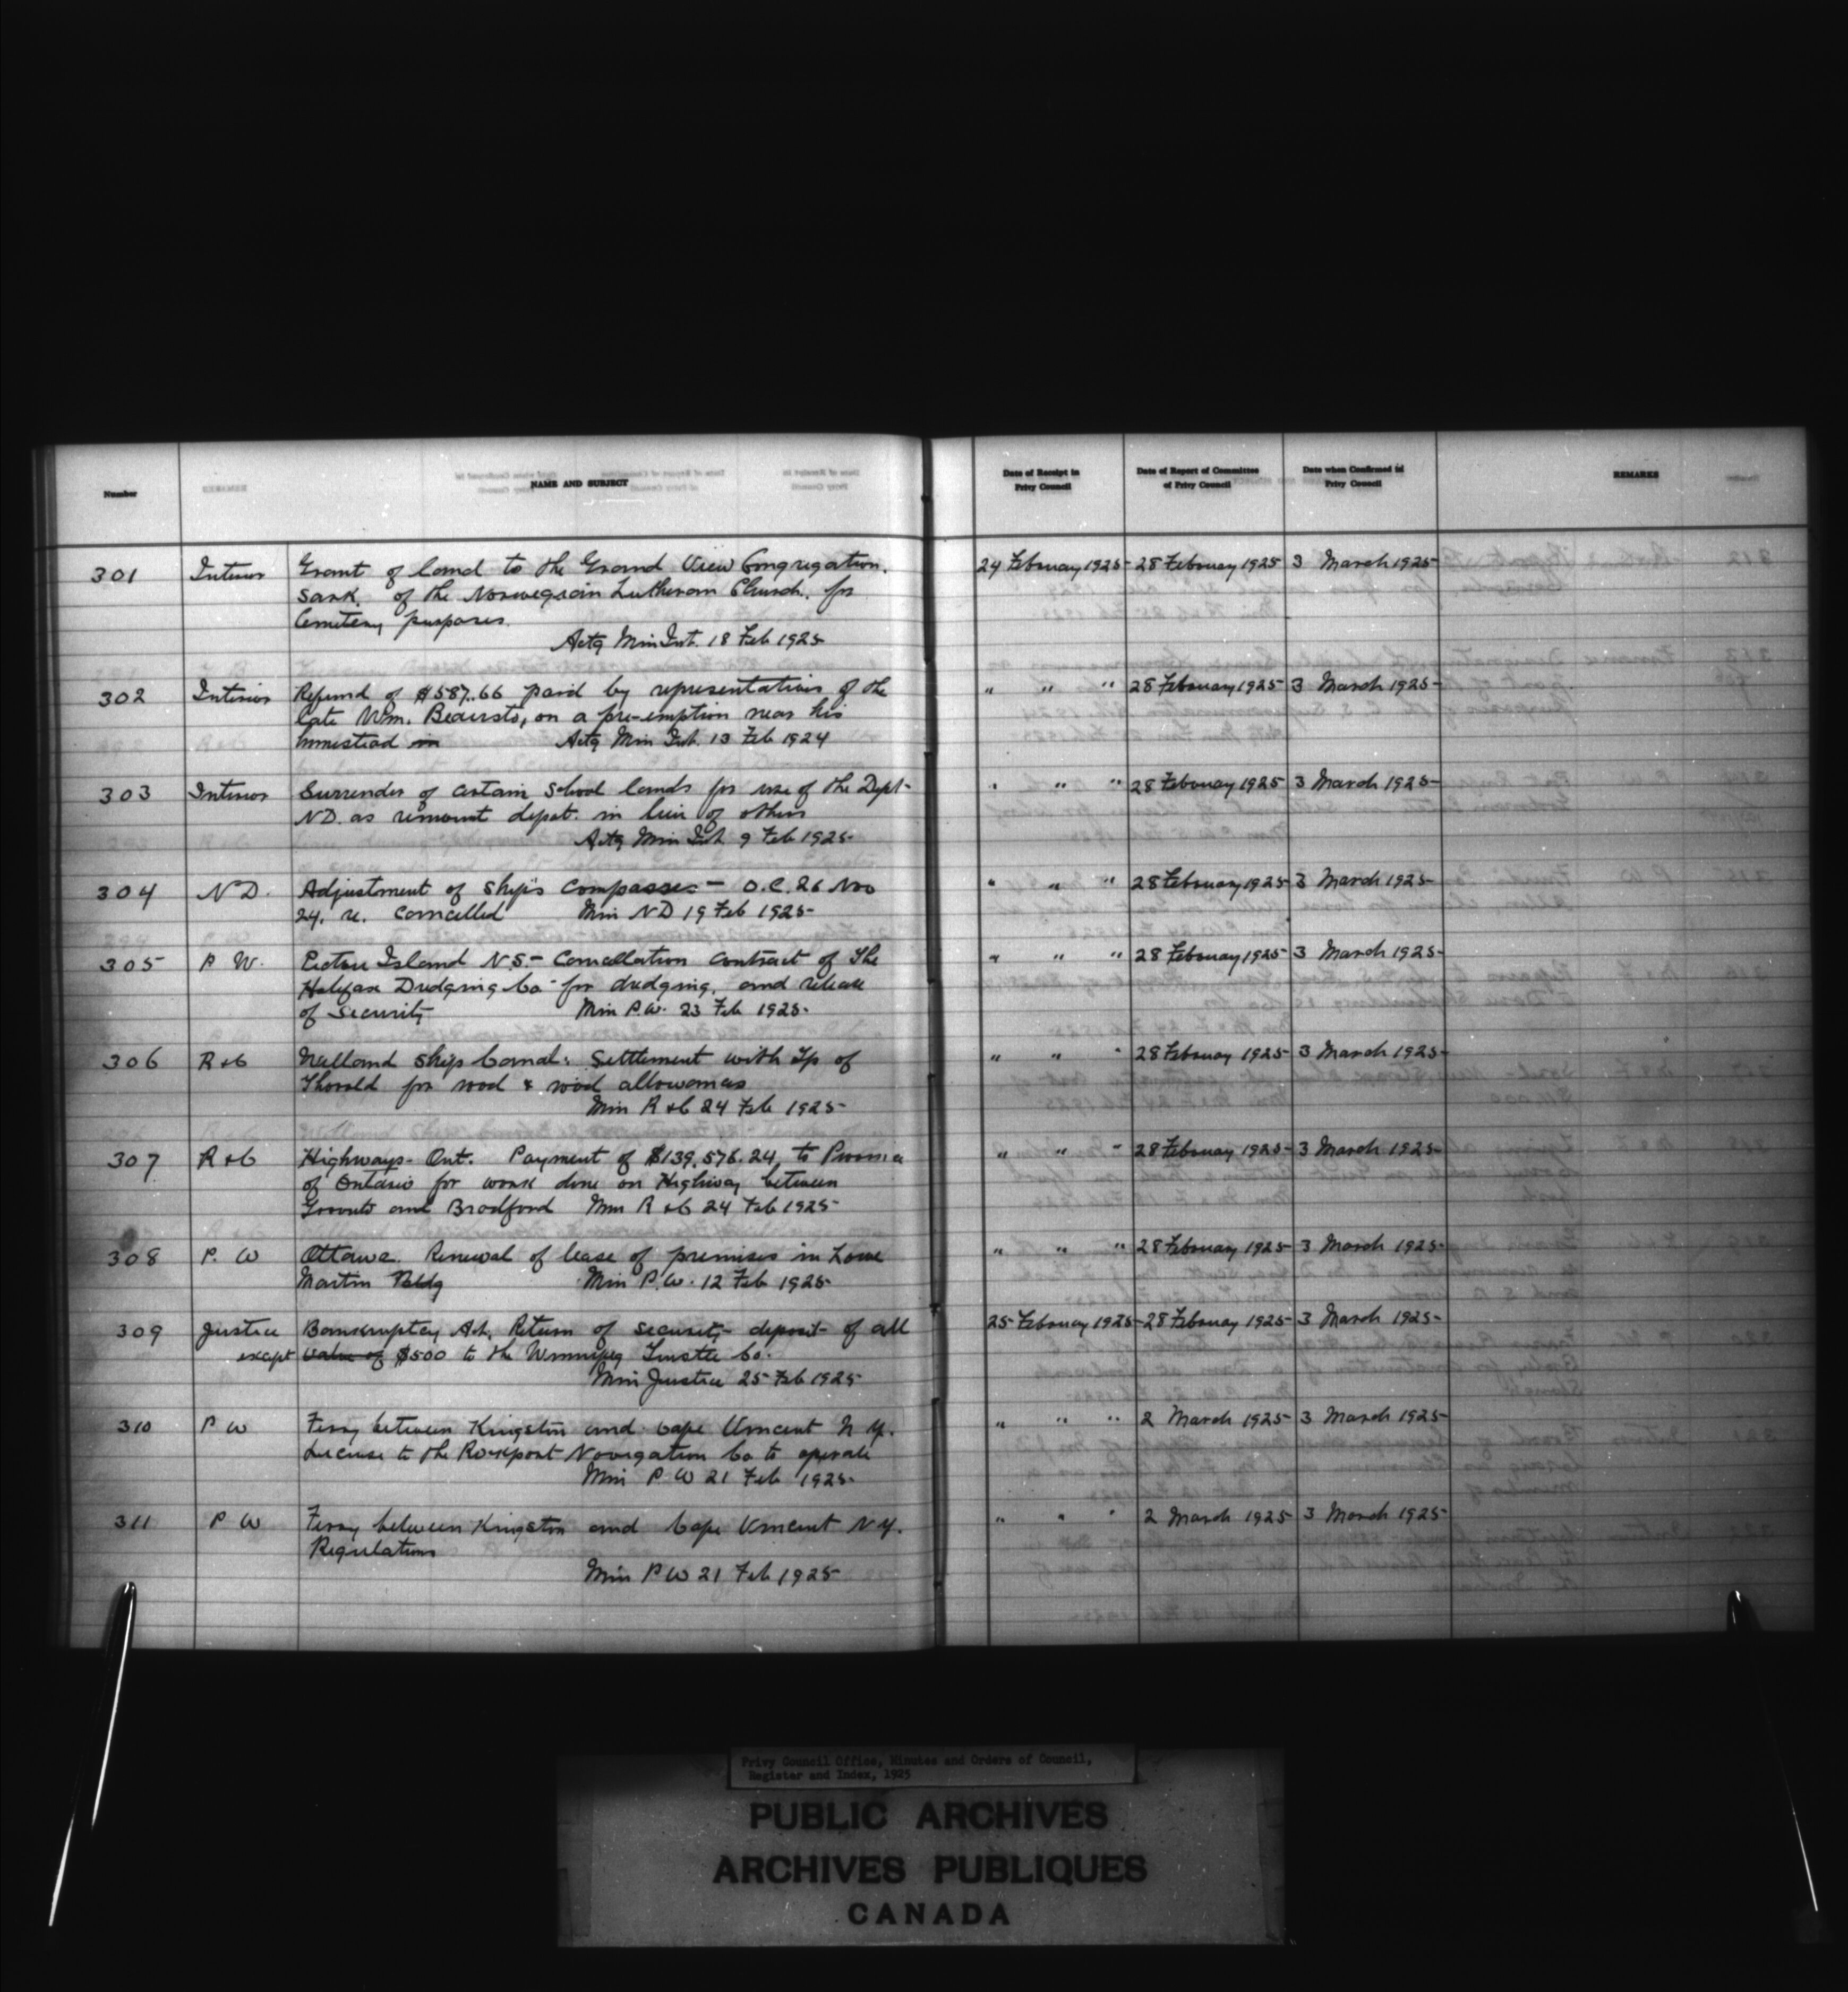 Number
NAME AND SUBJECT
Date of Receipt in Privy Council
Date of Report of Committee of Privy Council
Date when Confirmed in Privy Council
REMARKS
301 Interior Grant of land to the Grand View Congregation. 24 February 1925 28 February 1925 3 March 1925
Sask. of the Norwegian Lutheran Church, for
Cemetery purposes.
Actg Min Int. 18 Feb 1925
302 Interior Refund of $587.66 paid by representatives of the " " " 28 February 1925 3 March 1925
late Wm. Beairsto, on a pre-emption near his
homestead in Actg Min Int. 13 Feb 1924
303 Interior Surrender of certain School lands for use of the Dept " " " 28 February 1925 3 March 1925
N.D. as remount depot. in lieu of others
Actg Min Int 9 Feb 1925
304 N D. Adjustment of ship's compasses - O.C. 26 Nov " " " 28 February 1925 3 March 1925
24. re. cancelled Min N D 19 Feb 1925
305 P W. Pictou Island N.S. - Cancellation contract of The " " " 28 February 1925 3 March 1925
Halifax Dredging Co for dredging, and release
of security Min P.W. 23 Feb 1925
306 R & C Welland Ship Canal: Settlement with Tp of " " " 28 February 1925 3 March 1925
Thorold for road & road allowances
Min R & C 24 Feb 1925
307 R & C Highways - Ont. Payment of $139,576.24, to Province " " " 28 February 1925 3 March 1925
of Ontario for work done on Highway between
Toronto and Bradford Min R & C 24 Feb 1925
308 P. W Ottawa. Renewal of lease of premises in Lowe " " " 28 February 1925 3 March 1925
Martin Bldg Min P.W. 12 Feb 1925
309 Justice Bankruptcy Act. Return of security deposit of all 25 February 1925 28 February 1925 3 March 1925
except value of $500 to the Winnipeg Trustee Co.
Min Justice 25 Feb 1925
310 P W Ferry between Kingston and Cape Vincent N Y. " " " 2 March 1925 3 March 1925
License to the Rockport Navigation Co to operate
Min P W 21 Feb 1925
311 P W Ferry between Kingston and Cape Vincent N Y. " " " 2 March 1925 3 March 1925
Regulations
Min P W 21 Feb 1925
Privy Council Office, Minutes and Orders of Council,
Register and Index, 1925
PUBLIC ARCHIVES
ARCHIVES PUBLIQUES
CANADA